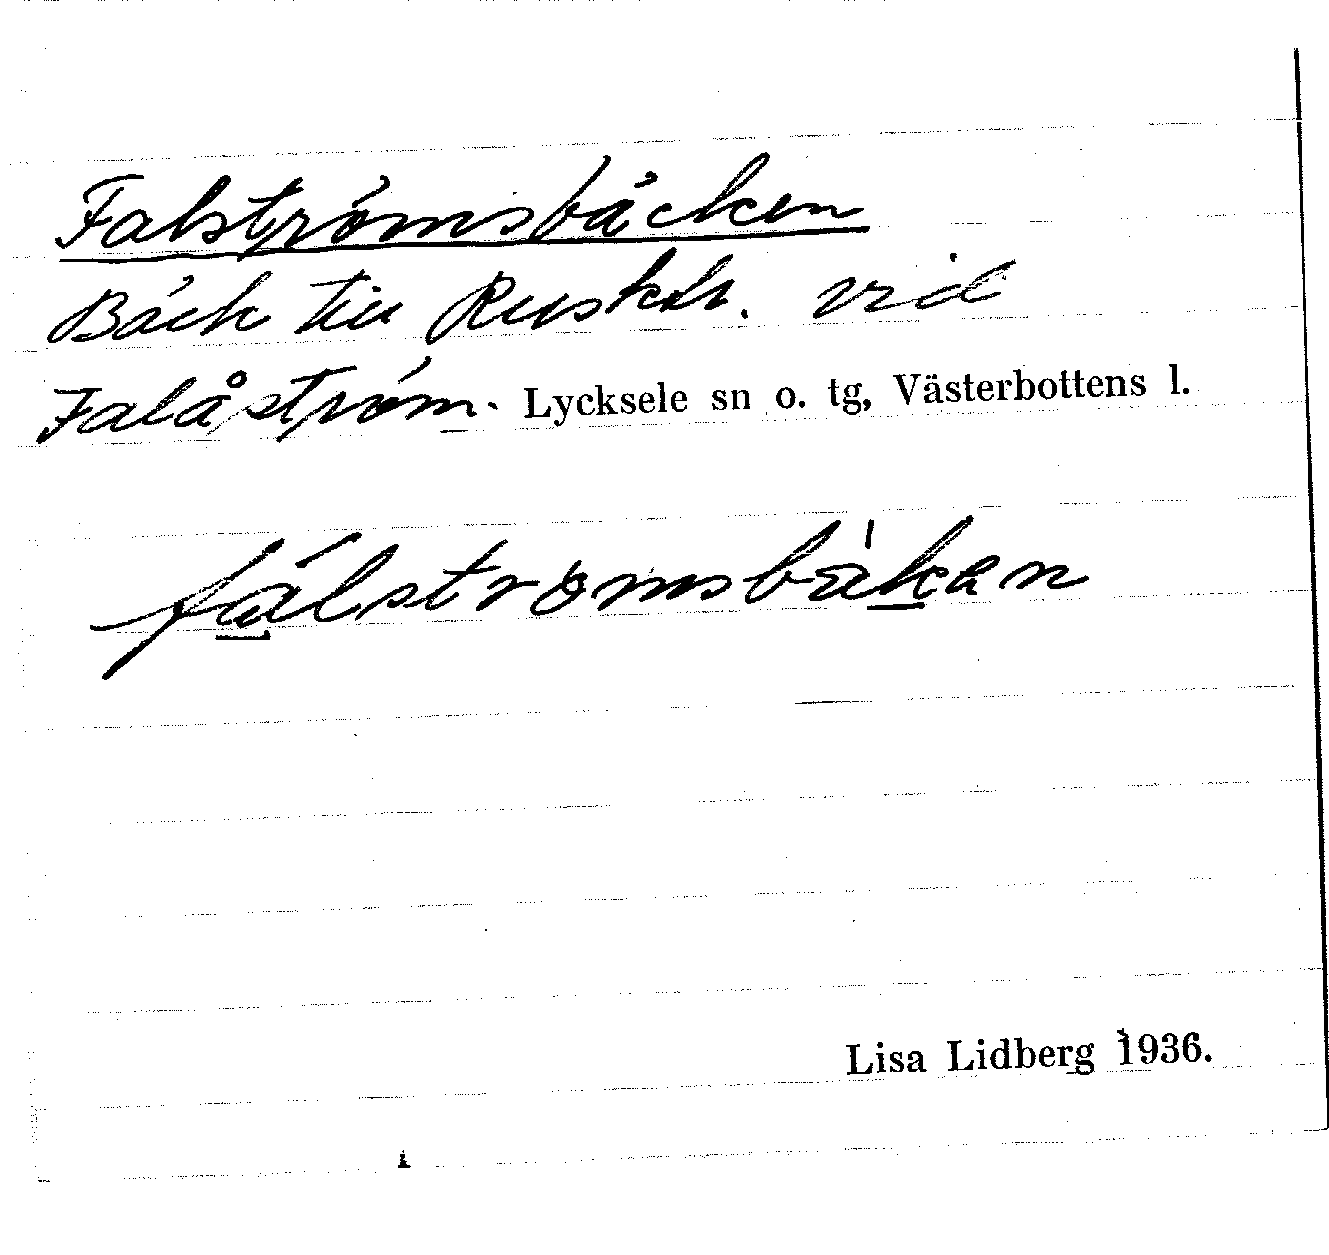 Falströmsbäcken
Bäck till Rusktr. vid
Falåström. Lycksele sn o. tg, Västerbottens l.
fálströmsbäkan
Lisa Lidberg 1936.